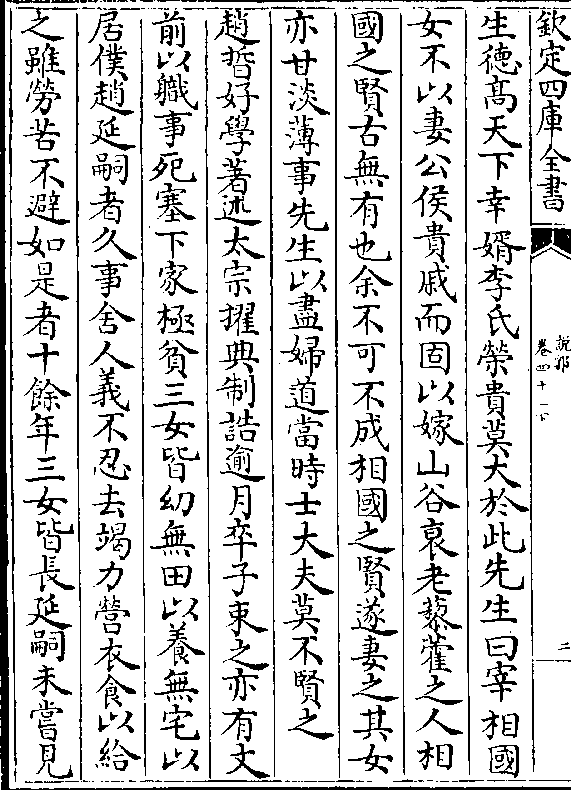 欽定四庫全書
說郛
卷四十一下
二
生德髙天下幸婿李氏榮貴莫大於此先生曰宰相國
女不以妻公侯貴戚而固以嫁山谷衰老藜藿之人相
國之賢古無有也余不可不成相國之賢遂妻之其女
亦甘淡薄事先生以盡婦道當時士大夫莫不賢之
趙晢好學著述太宗擢典制誥逾月卒子東之亦有文
前以職事死塞下家極貧三女皆幼無田以養無宅以
居僕趙延嗣者久事舍人義不忍去竭力營衣食以給
之雖勞苦不避如是者十餘年三女皆長延嗣未嘗見